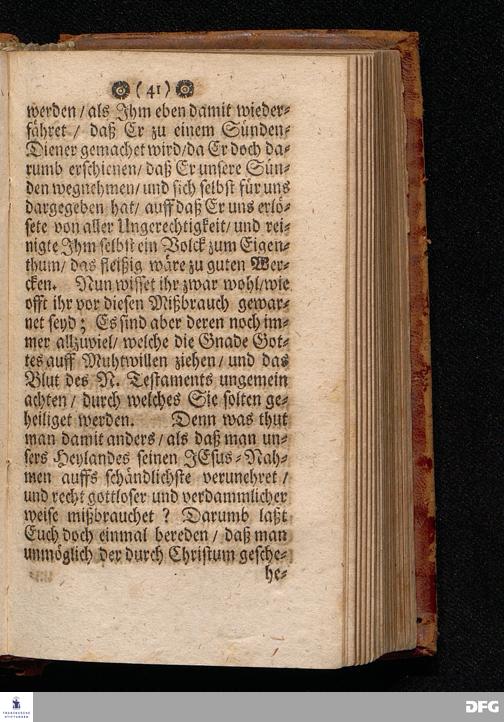 ( 41 )
werden / als Ihm eben damit wieder-
fähret / daß Er zu einem Sünden-
Diener gemachet wird / da Er doch da-
rumb erschienen / daß Er unsere Sün-
den wegnehmen / und sich selbst für uns
dargegeben hat / auff daß Er uns erlö-
sete von aller Ungerechtigkeit / und rei-
nigte Ihm selbst ein Volck zum Eigen-
thum / das fleißig wäre zu guten Wer-
cken. Nun wisset ihr zwar wohl / wie
offt ihr vor diesen Mißbrauch gewar-
net seyd ; Es sind aber deren noch im-
mer allzuviel / welche die Gnade Got-
tes auff Muhtwillen ziehen / und das
Blut des N. Testaments ungemein
achten / durch welches Sie solten ge-
heiliget werden. Denn was thut
man damit anders / als daß man un-
sers Heylandes seinen JEsus-Nah-
men auffs schändlichste verunehret /
und recht gottloser und verdammlicher
weise mißbrauchet ? Darumb laßt
Euch doch einmal bereden / daß man
unmöglich der durch Christum gesche-
he-
FRANCKESCHE
STIFTUNGEN
DFG